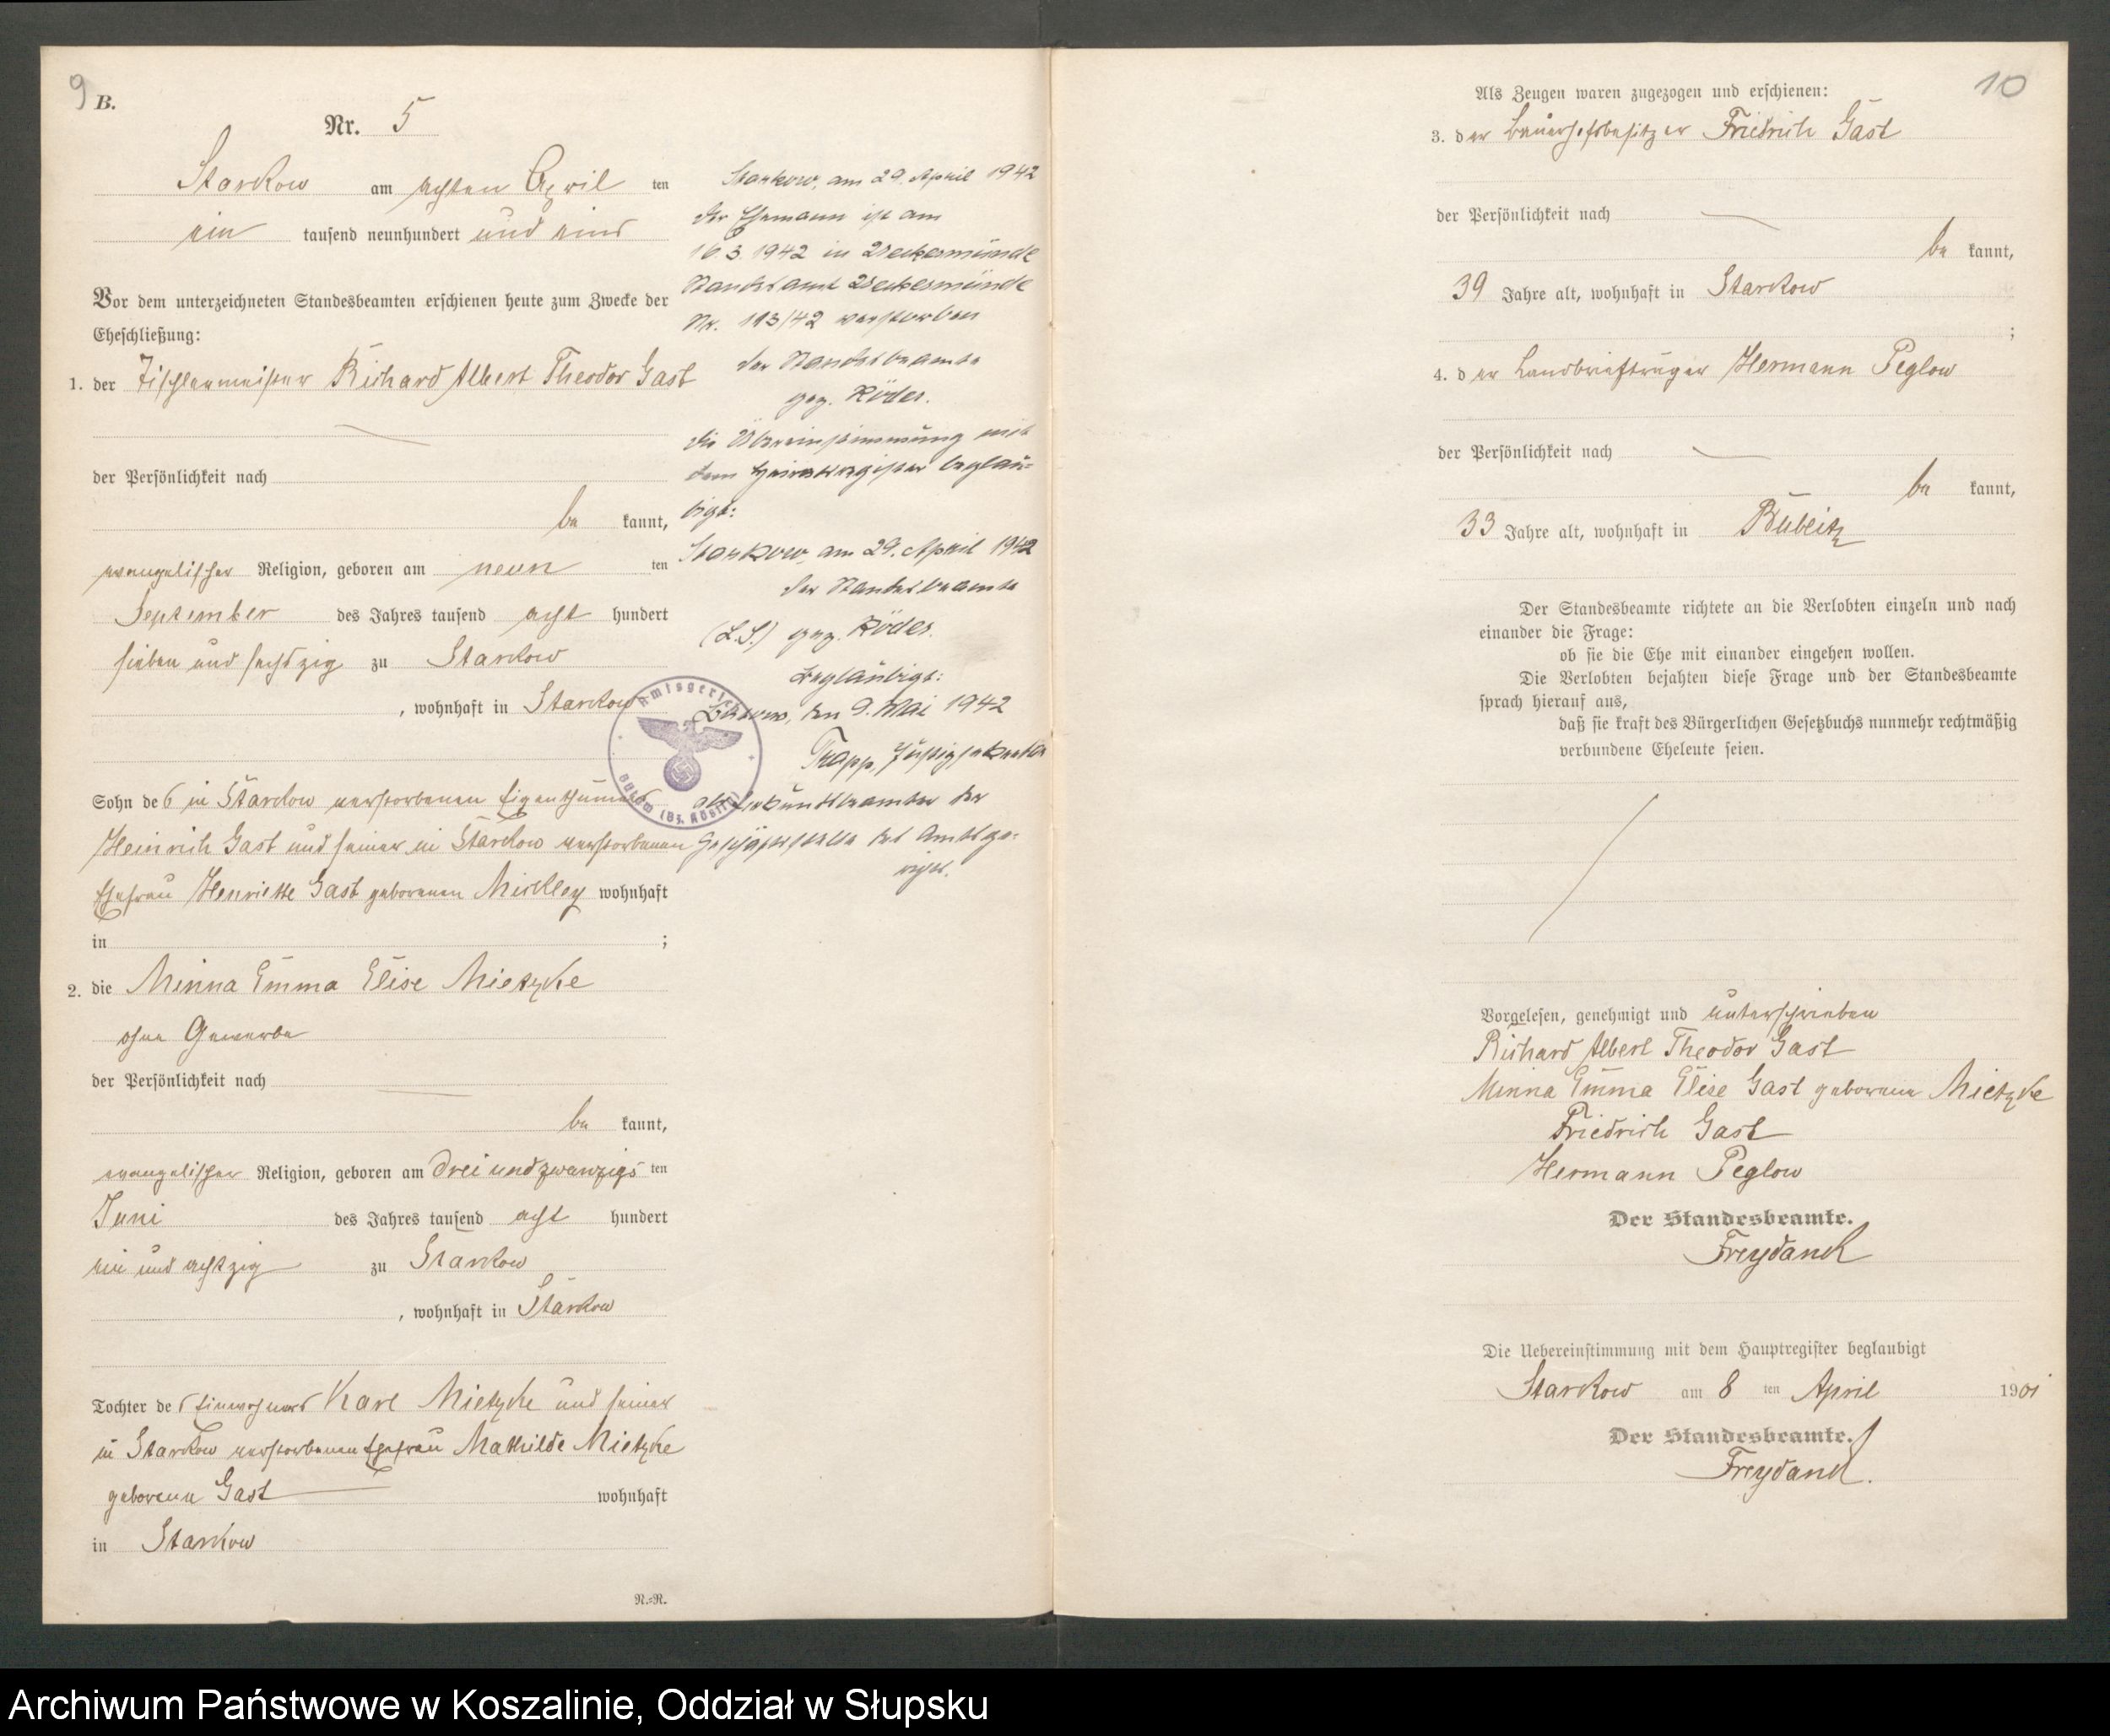 9 B.
Nr. 5
Starckow am achten April ten
ein tausend neunhundert und eins
Vor dem unterzeichneten Standesbeamten erschienen heute zum Zwecke der
Eheschließung:
1. der Tischlermeister Richard Albert Theodor Gast
der Persönlichkeit nach
be kannt,
evangelischer Religion, geboren am neun ten
September des Jahres tausend acht hundert
sieben und sechszig zu Starckow
, wohnhaft in Starckow
Sohn des in Starckow verstorbenen Eigenthümers
Heinrich Gast und seiner in Starckow verstorbenen
Ehefrau Henriette Gast geborenen Mickley wohnhaft
in ;
2. die Minna Emma Elise Mietzke
ohne Gewerbe
der Persönlichkeit nach
be kannt,
evangelischer Religion, geboren am drei und zwanzigs ten
Juni des Jahres tausend acht hundert
ein und achtzig zu Starckow
, wohnhaft in Starckow
Tochter des Einwohners Karl Mietzke und seiner
in Starckow verstorbenen Ehefrau Mathilde Mietzke
geborene Gast wohnhaft
in Starckow
N.-R.
Starkow, am 29. April 1942
Der Ehemann ist am
16.3.1942 in Ueckermünde
Standesamt Ueckermünde
Nr. 113/42 verstorben
Der Standesbeamte
gez. Röder.
Die Übereinstimmung mit
dem Heiratsregister beglau-
bigt:
Starkow, am 29. April 1942
Der Standesbeamte
(L.S.) gez. Röder.
Beglaubigt:
Bütow, den 9. Mai 1942
Trapp, Justizsekretär
als Urkundsbeamter der
Geschäftsstelle des Amtsge-
richts.
Amtsgericht
Bütow (Bz. Köslin)
10
Als Zeugen waren zugezogen und erschienen:
3. der Bauerhofsbesitzer Friedrich Gast
der Persönlichkeit nach
be kannt,
39 Jahre alt, wohnhaft in Starckow
;
4. der Landbriefträger Hermann Peglow
der Persönlichkeit nach
be kannt,
33 Jahre alt, wohnhaft in Bubeitz
Der Standesbeamte richtete an die Verlobten einzeln und nach
einander die Frage:
ob sie die Ehe mit einander eingehen wollen.
Die Verlobten bejahten diese Frage und der Standesbeamte
sprach hierauf aus,
daß sie kraft des Bürgerlichen Gesetzbuchs nunmehr rechtmäßig
verbundene Eheleute seien.
Vorgelesen, genehmigt und unterschrieben
Richard Albert Theodor Gast
Minna Emma Elise Gast geborene Mietzke
Friedrich Gast
Hermann Peglow
Der Standesbeamte.
Freydanck
Die Uebereinstimmung mit dem Hauptregister beglaubigt
Starckow am 8 ten April 1901
Der Standesbeamte.
Freydanck.
Archiwum Państwowe w Koszalinie, Oddział w Słupsku